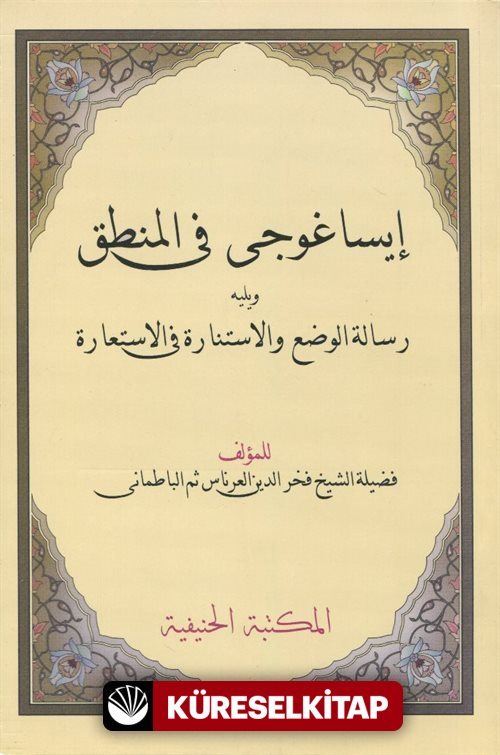 إيساغوجى فى المنطق
ويليه
رسالة الوضع والاستنارة فى الاستعارة
للمؤلف
فضيلة الشيخ فخر الدين العرناس ثم الباطمانى
المكتبة الحنيفية
KÜRESELKİTAP